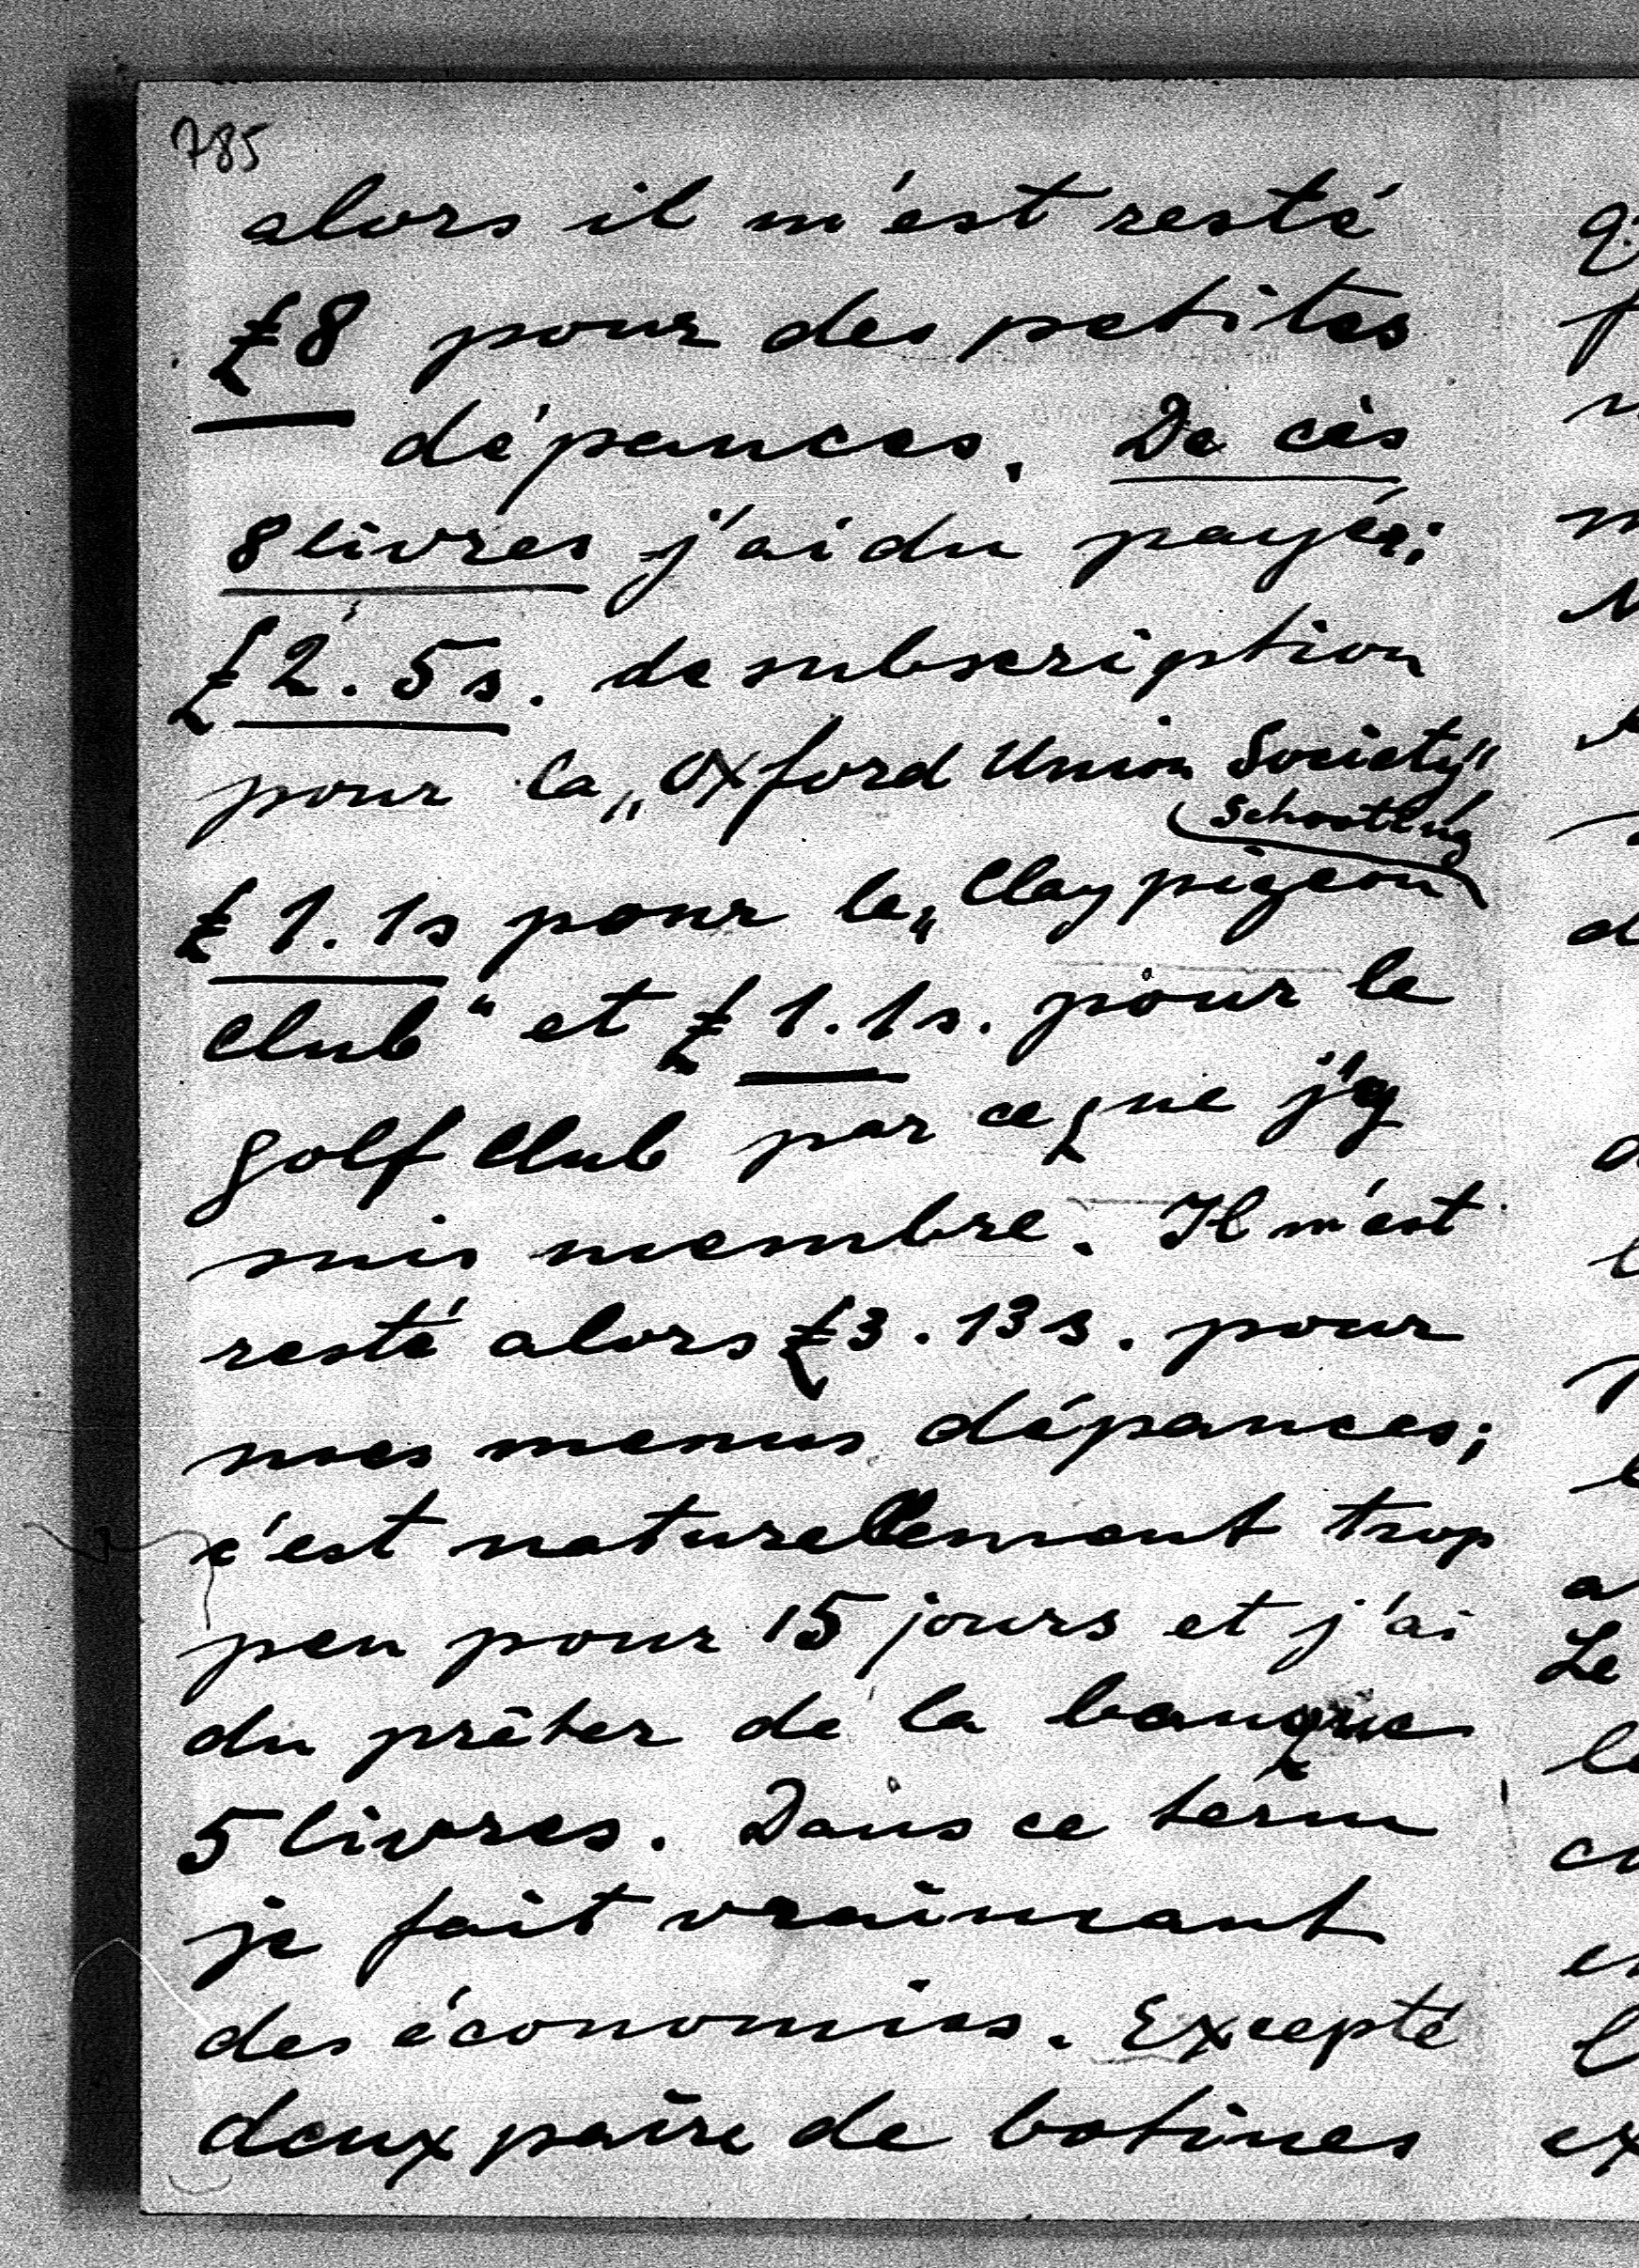 785
alors il m'est resté
£8 pour des petites
dépances. De cès
8 livres j'ai du payér;
£2.5s. de subscription
pour la „Oxford Union Society"
Schooting
£1.1s pour le „Clay pigeon
club" et £1.1s. pour le
golf club par ce que j'y
suis membre. Il m'est
resté alors £3.13s. pour
mes menus dépances;
c'est naturellement trop
peu pour 15 jours et j'ai
du prêter de la banque
5 livres. Dans ce term
je fait vraimeant
des économies. Excepté
deux paire de botines